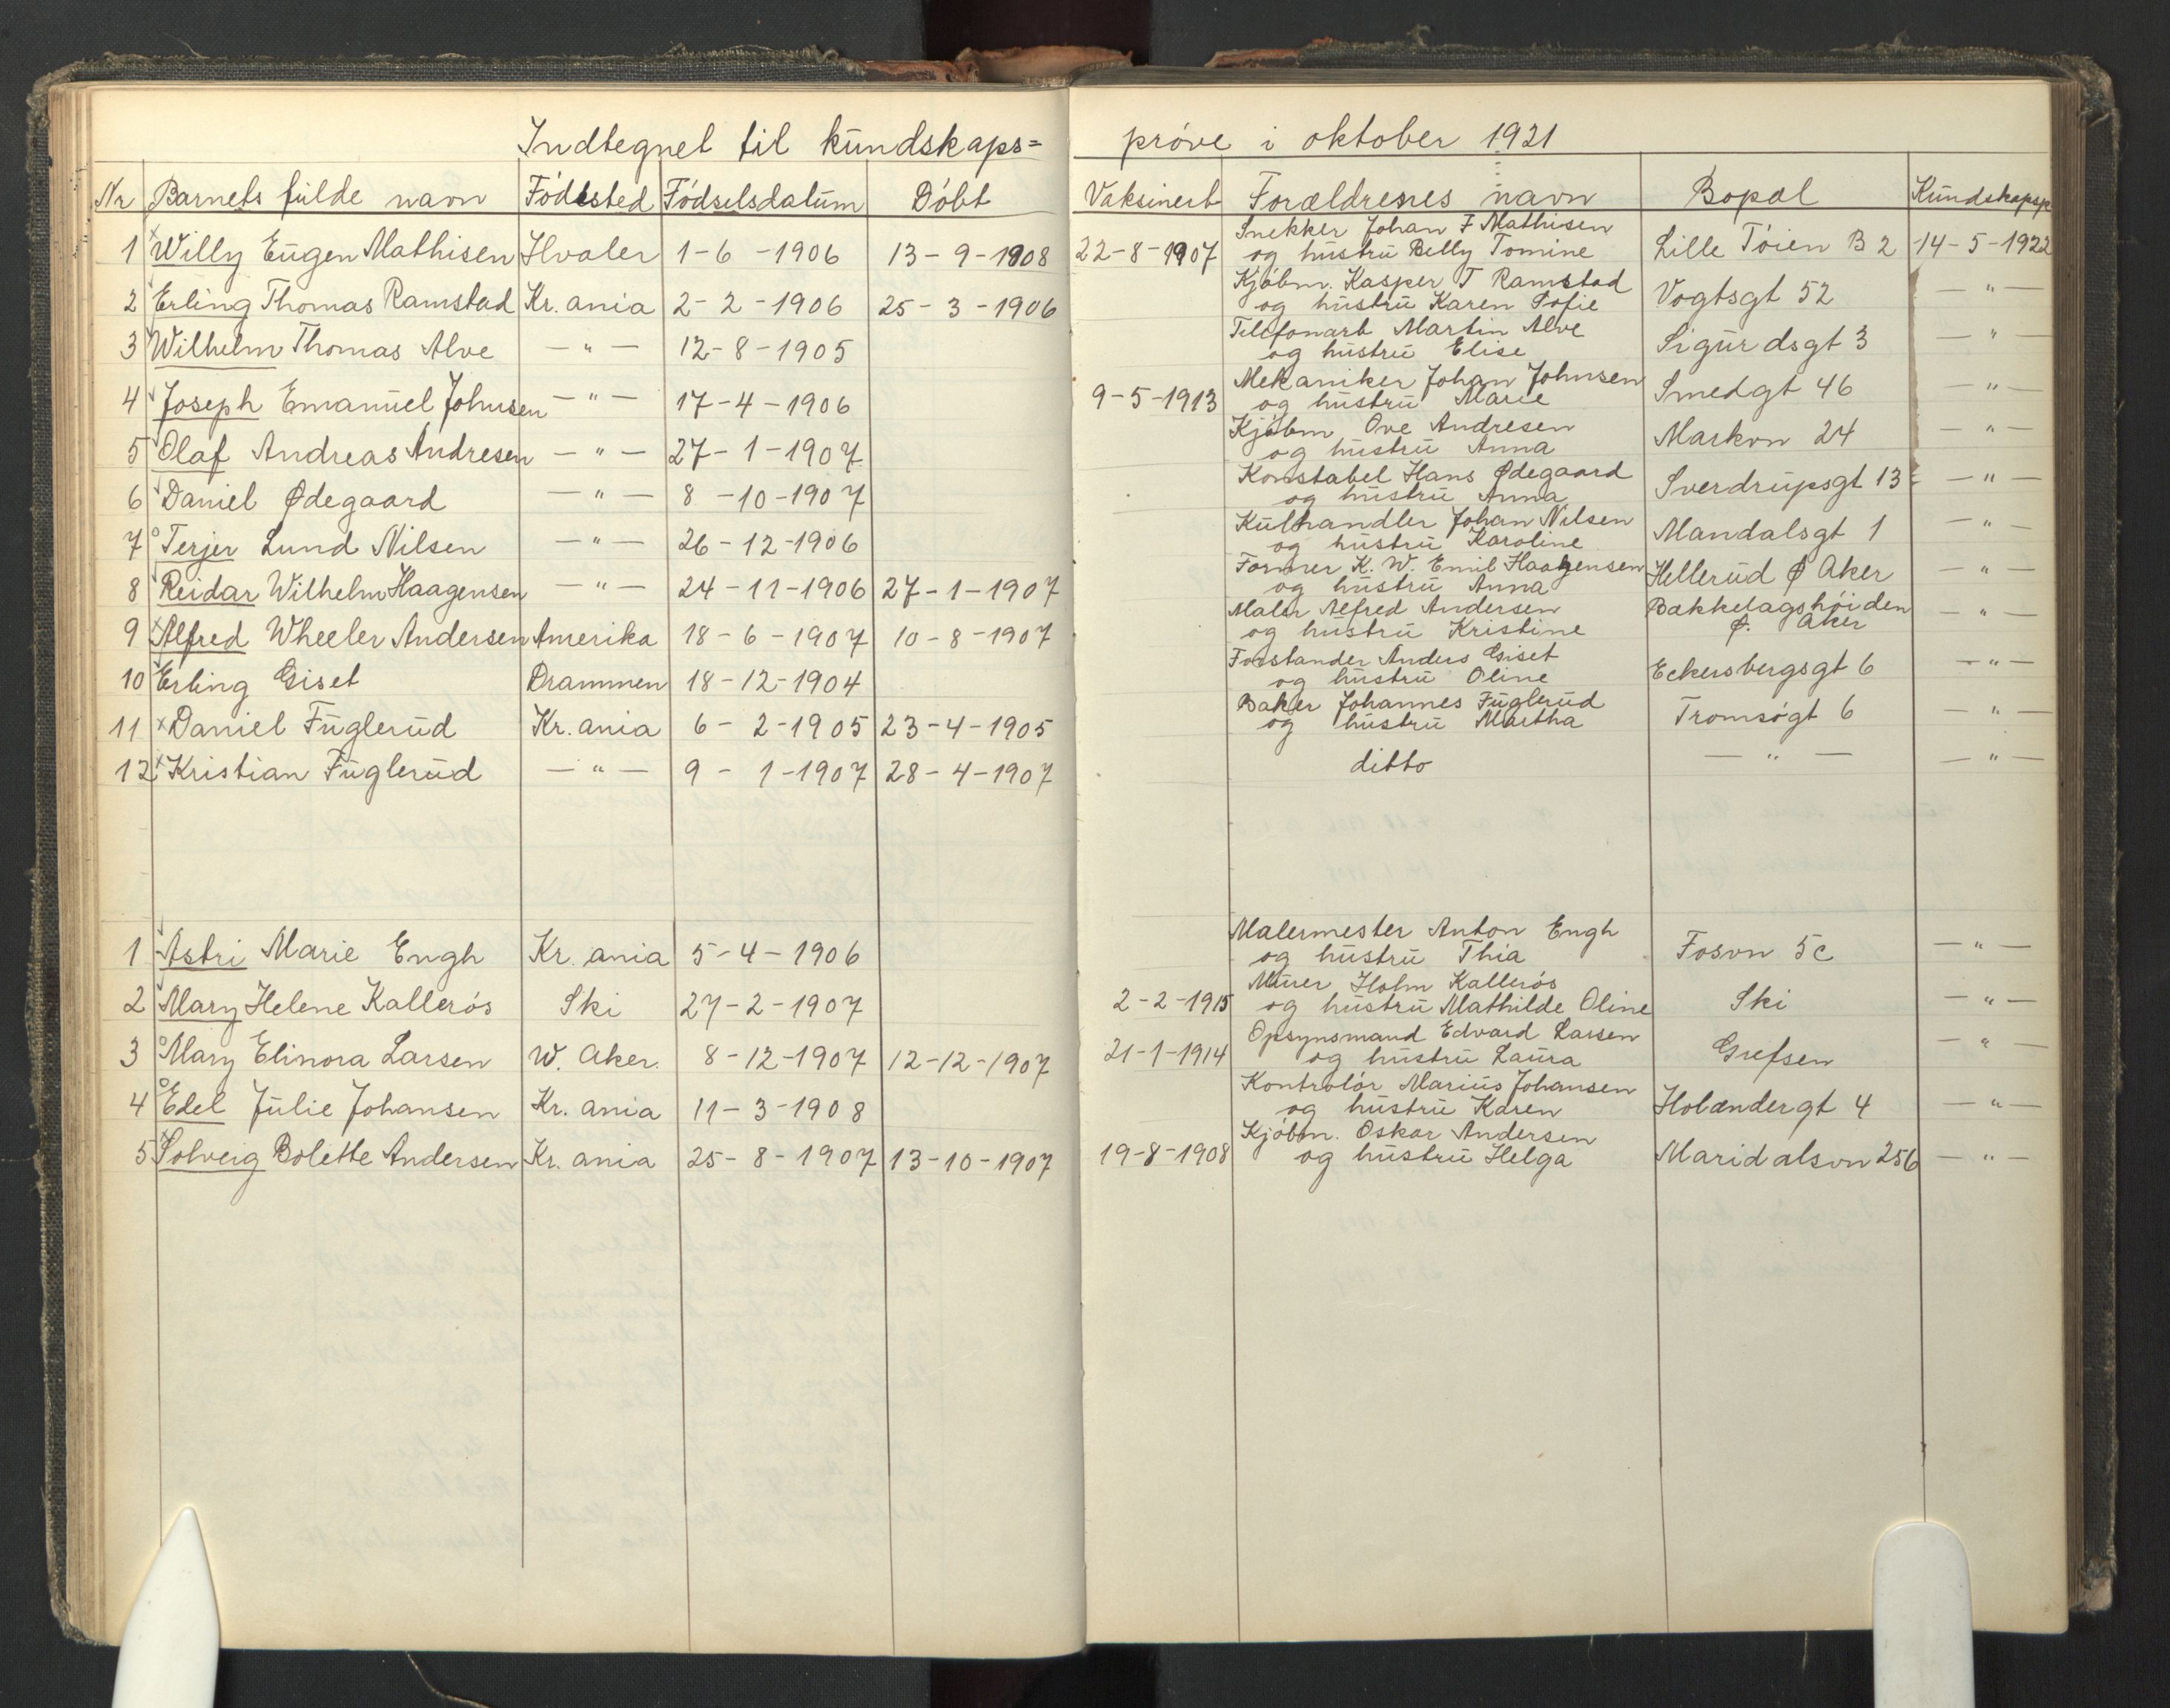 Indtegnet til kundskaps=
prøve i oktober 1921
Nr Barnets fulde navn Fødested Fødselsdatum Døbt Vaksinert Forældrenes navn Bopæl Kundskapsp
Snekker Johan F Mathisen
1 x Willy Eugen Mathisen Hvaler 1-6-1906 13-9-1908 22-8-1907 og hustru Betty Tomine Lille Tøien B 2 14-5-1922
Kjøbm. Kasper T Ramstad
2 Erling Thomas Ramstad Kr. ania 2-2-1906 25-3-1906 og hustru Karen Sofie Vogtsgt 52 — " —
Telefonarb Martin Alve
3 Wilhelm Thomas Alve — " — 12-8-1905 og hustru Elise Sigurdsgt 3 — " —
Mekaniker Johan Johnsen
4 Joseph Emanuel Johnsen — " — 17-4-1906 9-5-1913 og hustru Marie Smedgt 46 — " —
Kjøbm Ove Andresen
5 Olaf Andreas Andresen — " — 27-1-1907 og hustru Anna Markvn 24 — " —
Konstabel Hans Ødegaard
6 Daniel Ødegaard — " — 8-10-1907 og hustru Anna Sverdrupsgt 13 — " —
Kulhandler Johan Nilsen
7 o Terjer Lund Nilsen — " — 26-12-1906 og hustru Karoline Mandalsgt 1 — " —
Former K. W. Emil Haagensen
8 Reidar Wilhelm Haagensen — " — 24-11-1906 27-1-1907 og hustru Anna Hellerud Ø Aker — " —
Maler Alfred Andersen Bækkelagshøiden
9 x Alfred Wheeler Andersen Amerika 18-6-1907 10-8-1907 og hustru Kristine Ø. Aker — " —
Forstander Anders Giset
10 Erling Giset Drammen 18-12-1904 og hustru Oline Eckersbergsgt 6 — " —
Baker Johannes Fuglerud
11 x Daniel Fuglerud Kr. ania 6-2-1905 23-4-1905 og hustru Martha Tromsøgt 6 — " —
12 x Kristian Fuglerud — " — 9-1-1907 28-4-1907 ditto — " — — " —
Malermester Anton Engh
1 Astri Marie Engh Kr. ania 5-4-1906 og hustru Thia Fosvn 5c — " —
Murer Holm Kallerøs
2 Mary Helene Kallerøs Ski 27-2-1907 2-2-1915 og hustru Mathilde Oline Ski — " —
Opsynsmand Edvard Larsen
3 o Mary Elinora Larsen W. Aker. 8-12-1907 12-12-1907 21-1-1914 og hustru Laura Grefsen — " —
Kontrolør Marius Johansen
4 o Edel Julie Johansen Kr. ania 11-3-1908 og hustru Karen Holændergt 4 — " —
Kjøbm. Oskar Andersen
5 x Solveig Bolette Andersen Kr. ania 25-8-1907 13-10-1907 19-8-1908 og hustru Helga Maridalsvn 256 — " —